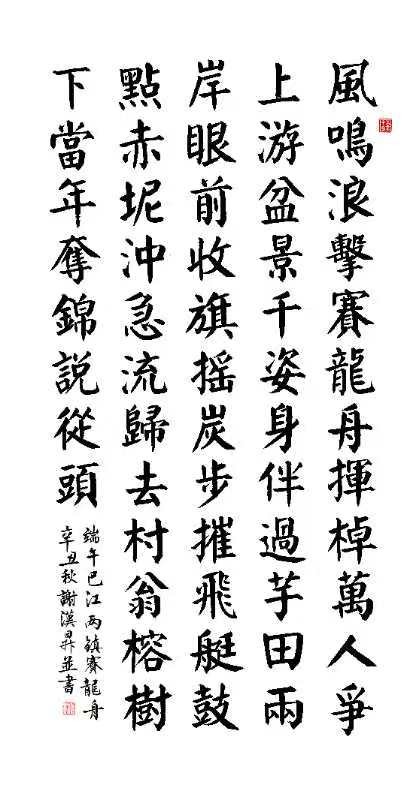 風鳴浪擊賽龍舟揮棹萬人爭
上游盆景千姿身伴過芋田兩
岸眼前收旗摇炭步摧飛艇鼓
點赤坭沖急流歸去村翁榕樹
下當年奪錦說從頭
端午巴江兩鎮賽龍舟
辛丑秋謝漢昇並書